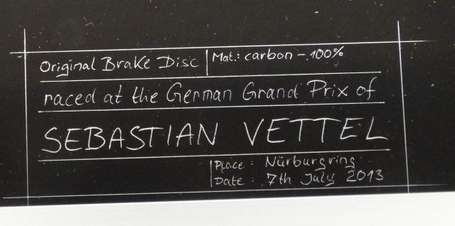 Original Brake Disc Mat.: carbon - 100%
raced at the German Grand Prix of
SEBASTIAN VETTEL
Place : Nürburgring
Date : 7th July 2013